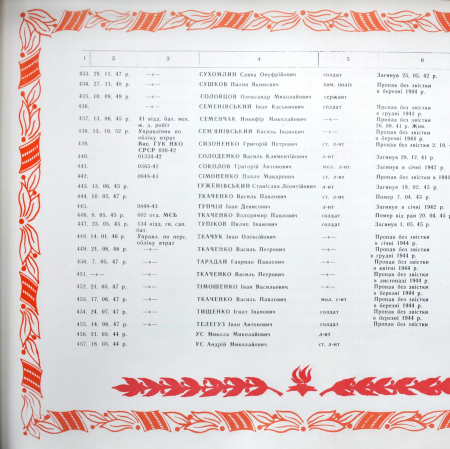 1 2 3 4 5 6
433. 29. 11. 47 р. —«— СУХОМЛИН Савка Онуфрійович солдат Загинув 25. 05. 42 р.
434. 27. 11. 48 р. —«— СУШКОВ Пилип Якимович зам. політ Пропав без звістки
в березні 1944 р.
435. 10. 08. 49 р. —«— СОЛОВЦОВ Олександр Миколайович сержант
436. —«— СЕМЕНІВСЬКИЙ Іван Касьянович солдат Пропав без звістки
в грудні 1943 р.
437. 13. 06. 45 р. 41 відд. бат. мех. СЕМЕНЧАК Никифір Миколайович —«— Пропав без звістки
ж. д. робіт
438. 13. 10. 52 р. Управління по СЕМ'ЯНІВСЬКИЙ Василь Іванович —«— Пропав без звістки
обліку втрат в березні 1944 р.
439. Вик. ГУК НКО СИЗОНЕНКО Григорій Петрович ст. л-нт Пропав без звістки 2. 10.
СРСР 036-42
440. 01354-42 СОЛОДЕНКО Василь Климентійович л-нт Загинув 28. 12. 41 р.
441. 0365-42 СОКОЛОВ Григорій Антонович мол. л-нт Загинув в січні 1942 р.
442. 0849-43 СІМОНЕНКО Павло Макарович ст. л-нт Пропав без звістки в 1941
443. 13. 06. 45 р. ТУЖЕНІВСЬКИЙ Станіслав Леонтійович л-нт Загинув 19. 02. 45 р.
444. 16. 05. 47 р. ТКАЧЕНКО Василь Павлович ст. л-нт Помер 7. 04. 43 р.
445. 0848-43 ТУПЧІЙ Іван Денисович л-нт Загинув в січні 1942 р.
446. 8. 05. 45 р. 602 отд. МСБ ТКАЧЕНКО Володимир Павлович солдат Помер від ран 20. 04. 45
447. 23. 05. 45 р. 134 відд. гв. сап. ТУПІКОВ Пилип Іванович солдат Загинув 1. 05. 45 р.
бат.
448. 14. 01. 46 р. Управл. по перс. ТКАЧУК Іван Олексійович солдат Пропав без звістки
обліку втрат в січні 1944 р.
449. 21. 08. 46 р. —«— ТКАЧЕНКО Василь Петрович —«— Пропав без звістки
в грудні 1944 р.
450. 7. 05. 47 р. —«— ТАРАДАЙ Гаврило Павлович —«— Пропав без звістки
в квітні 1944 р.
451. —«— —«— ТКАЧЕНКО Василь Петрович —«— Пропав без звістки
в листопаді 1944 р.
452. 21. 05. 47 р. —«— ТІМОШЕНКО Іван Васильович —«— Пропав без звістки
в березні 1944 р.
453. 17. 06. 47 р. —«— ТКАЧЕНКО Василь Павлович мол. с-нт Пропав без звістки
в березні 1944 р.
454. 24. 07. 47 р. —«— ТИЩЕНКО Ігнат Іванович солдат Пропав без звістки
в березні 1944 р.
455. 14. 08. 47 р. —«— ТЕЛЕГУЗ Іван Антонович солдат Пропав без звістки
456. 21. 03. 44 р. УС Микола Миколайович л-нт
457. 18. 03. 44 р. УС Андрій Миколайович ст. л-нт